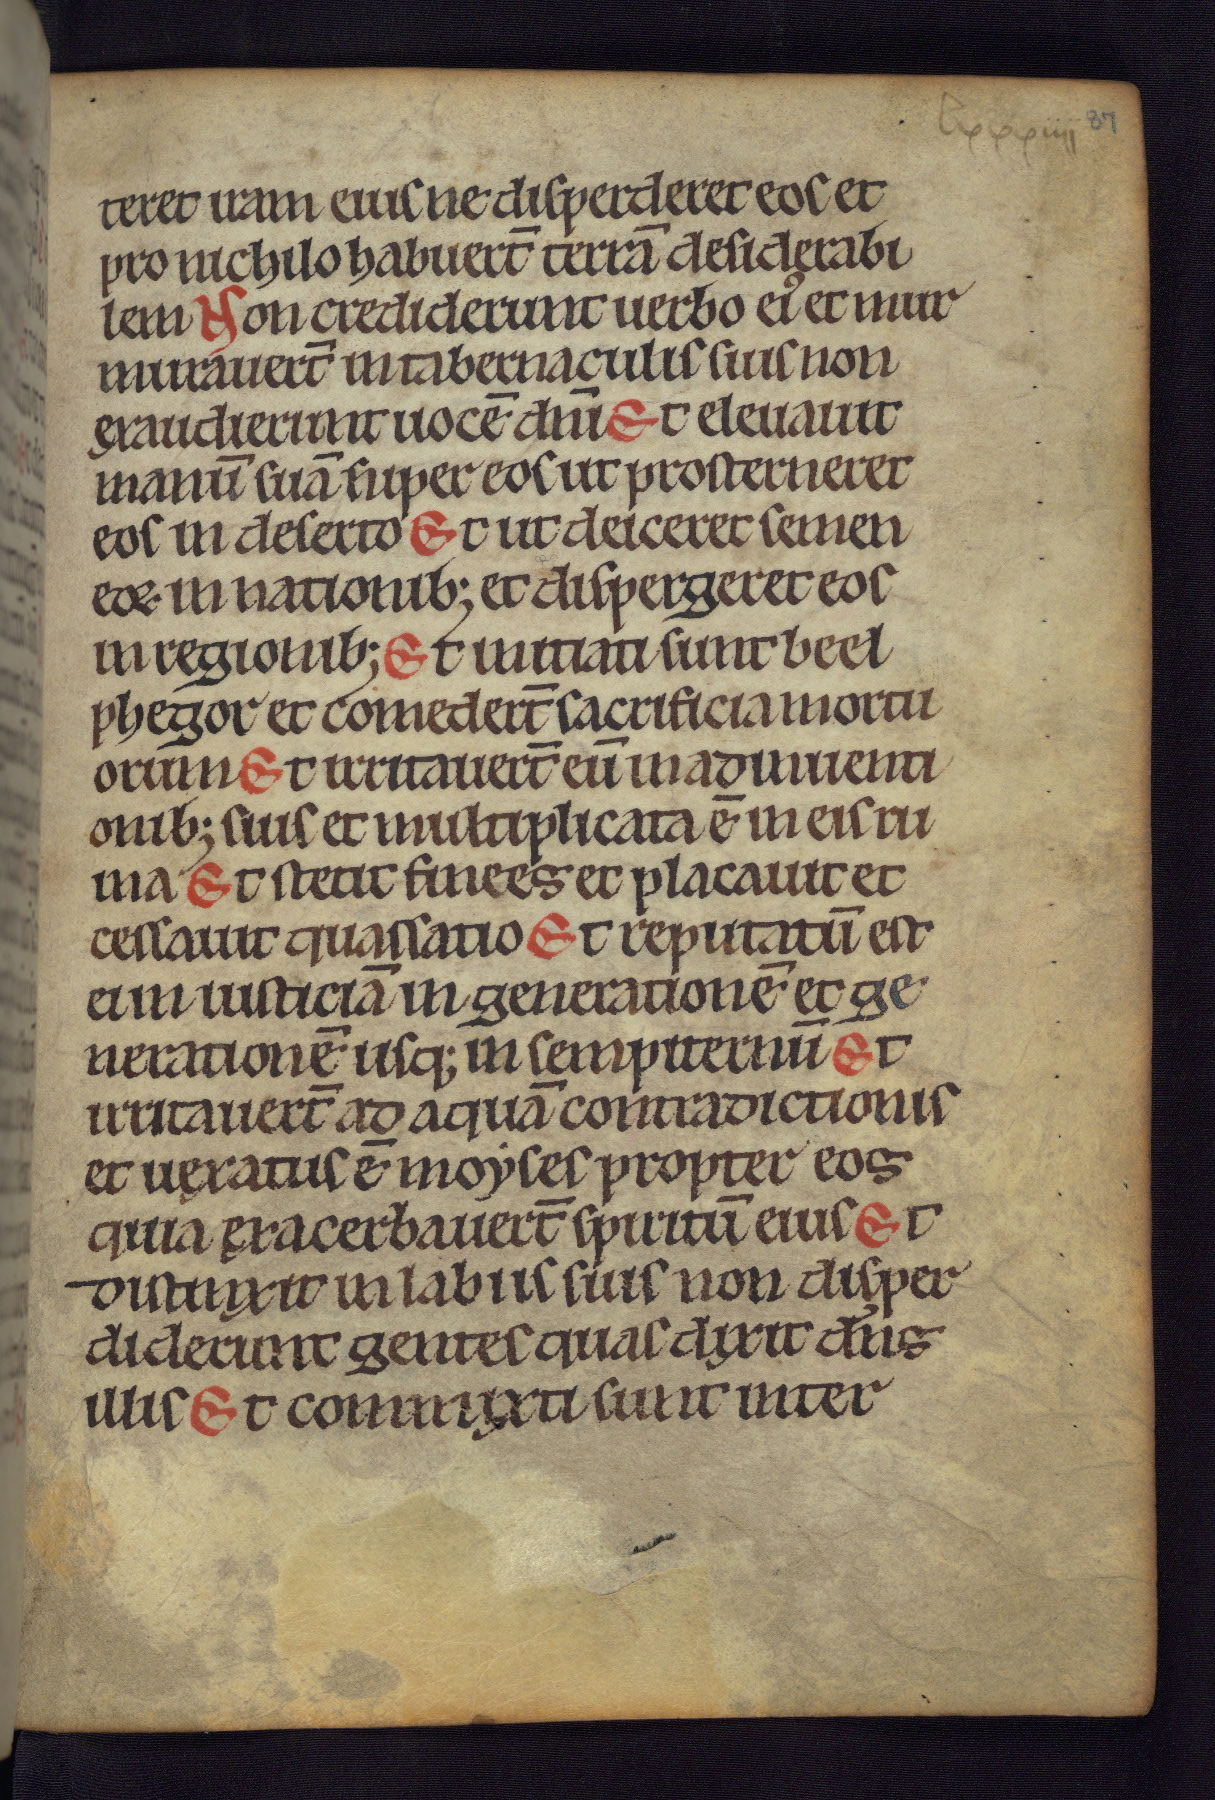 lxxxiiii 87
teret iram eius ne disperderet eos et
pro nichilo habuert̄ terrā desiderabi
lem Non crediderunt uerbo ei᾽ et mur
murauert̄ in tabernaculis suis non
exaudierunt uocē dn̄i Et eleuauit
manū suā super eos ut prosterneret
eos in deserto Et ut deiceret semen
eoꝝ in nationib; et dispergeret eos
in regionib; Et initiati sunt beel
phegor et comedert̄ sacrificia mortu
orum Et irritauert̄ eū in adinuenti
onib; suis et multiplicata ē in eis ru
ina Et stetit finees et placauit et
cessauit quassatio Et reputatū est
ei in iusticiā in generationē et ge
nerationē usq; in sempiternū Et
irritauert̄ ad aquā contradictionis
et uexatus ē moyses propter eos
quia exacerbauert̄ spiritū eius Et
distinxit in labiis suis non disper
diderunt gentes quas dixit dn̄s
illis Et commixti sunt inter